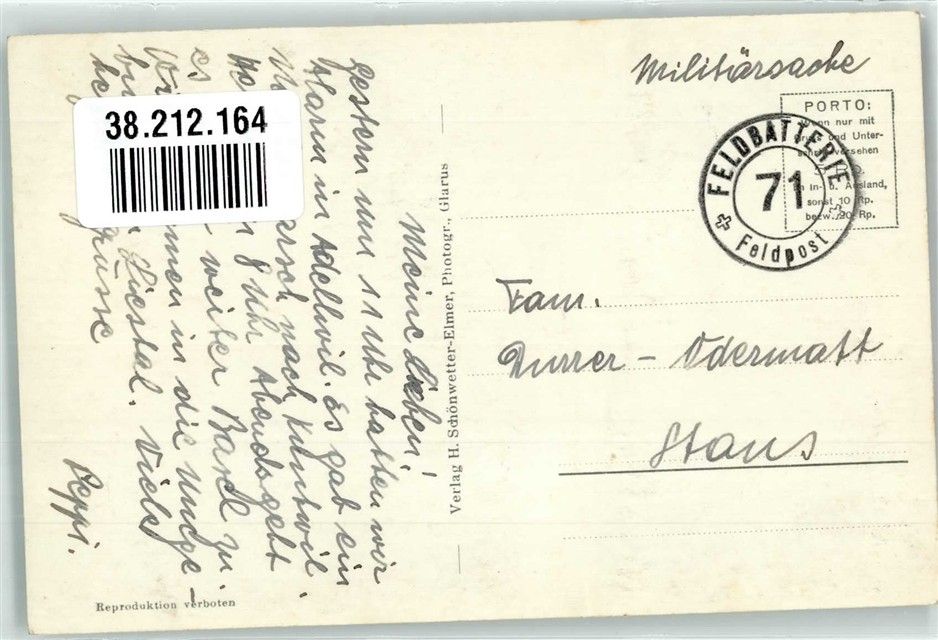 Militärsache
PORTO:
nur mit
und Unter-
Ausland,
sonst 10 Rp.
bezw. 20 Rp.
FELDBATTERIE
71
Feldpost
38.212.164
Meine Lieben!
Gestern um 11 Uhr hatten wir
Alarm in Adellwil. Es gab ein
nach Knutwil.
8 Uhr Abends geht
es weiter Basel zu.
in die Umge-
Liestal. Viele
grüsse
Peppi.
Verlag H. Schönwetter-Elmer, Photogr., Glarus
Fam.
Durrer - Odermatt
Stans
Reproduktion verboten